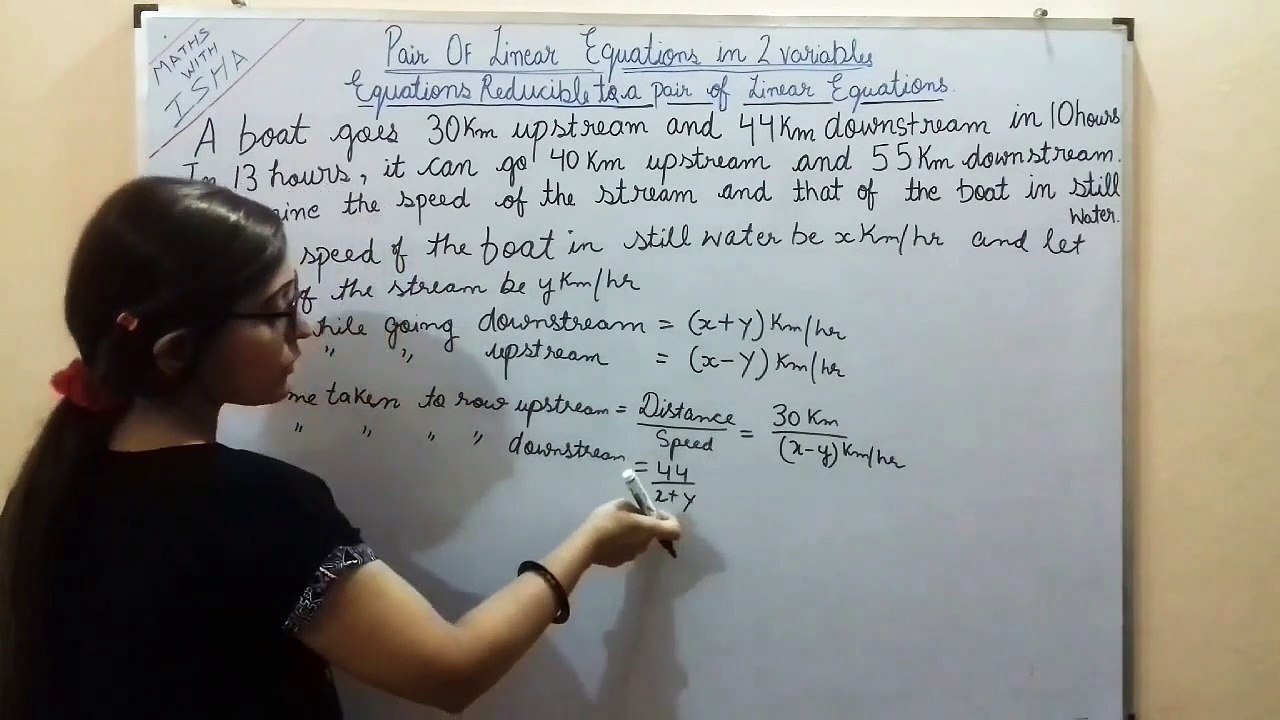 MATHS
WITH
ISHA
Pair Of Linear Equations in 2 variables
Equations Reducible to a pair of Linear Equations.
A boat goes 30Km upstream and 44Km downstream in 10hours
In 13 hours, it can go 40 Km upstream and 55Km downstream.
ine the speed of the stream and that of the boat in still
Water.
speed of the boat in still water be x Km/hr and let
of the stream be y Km/hr
hile going downstream = (x+y) Km/hr
" " upstream = (x-y) Km/hr
me taken to row upstream = Distance/Speed = 30 Km/(x-y) Km/hr
" " " " downstream = 44/x+y